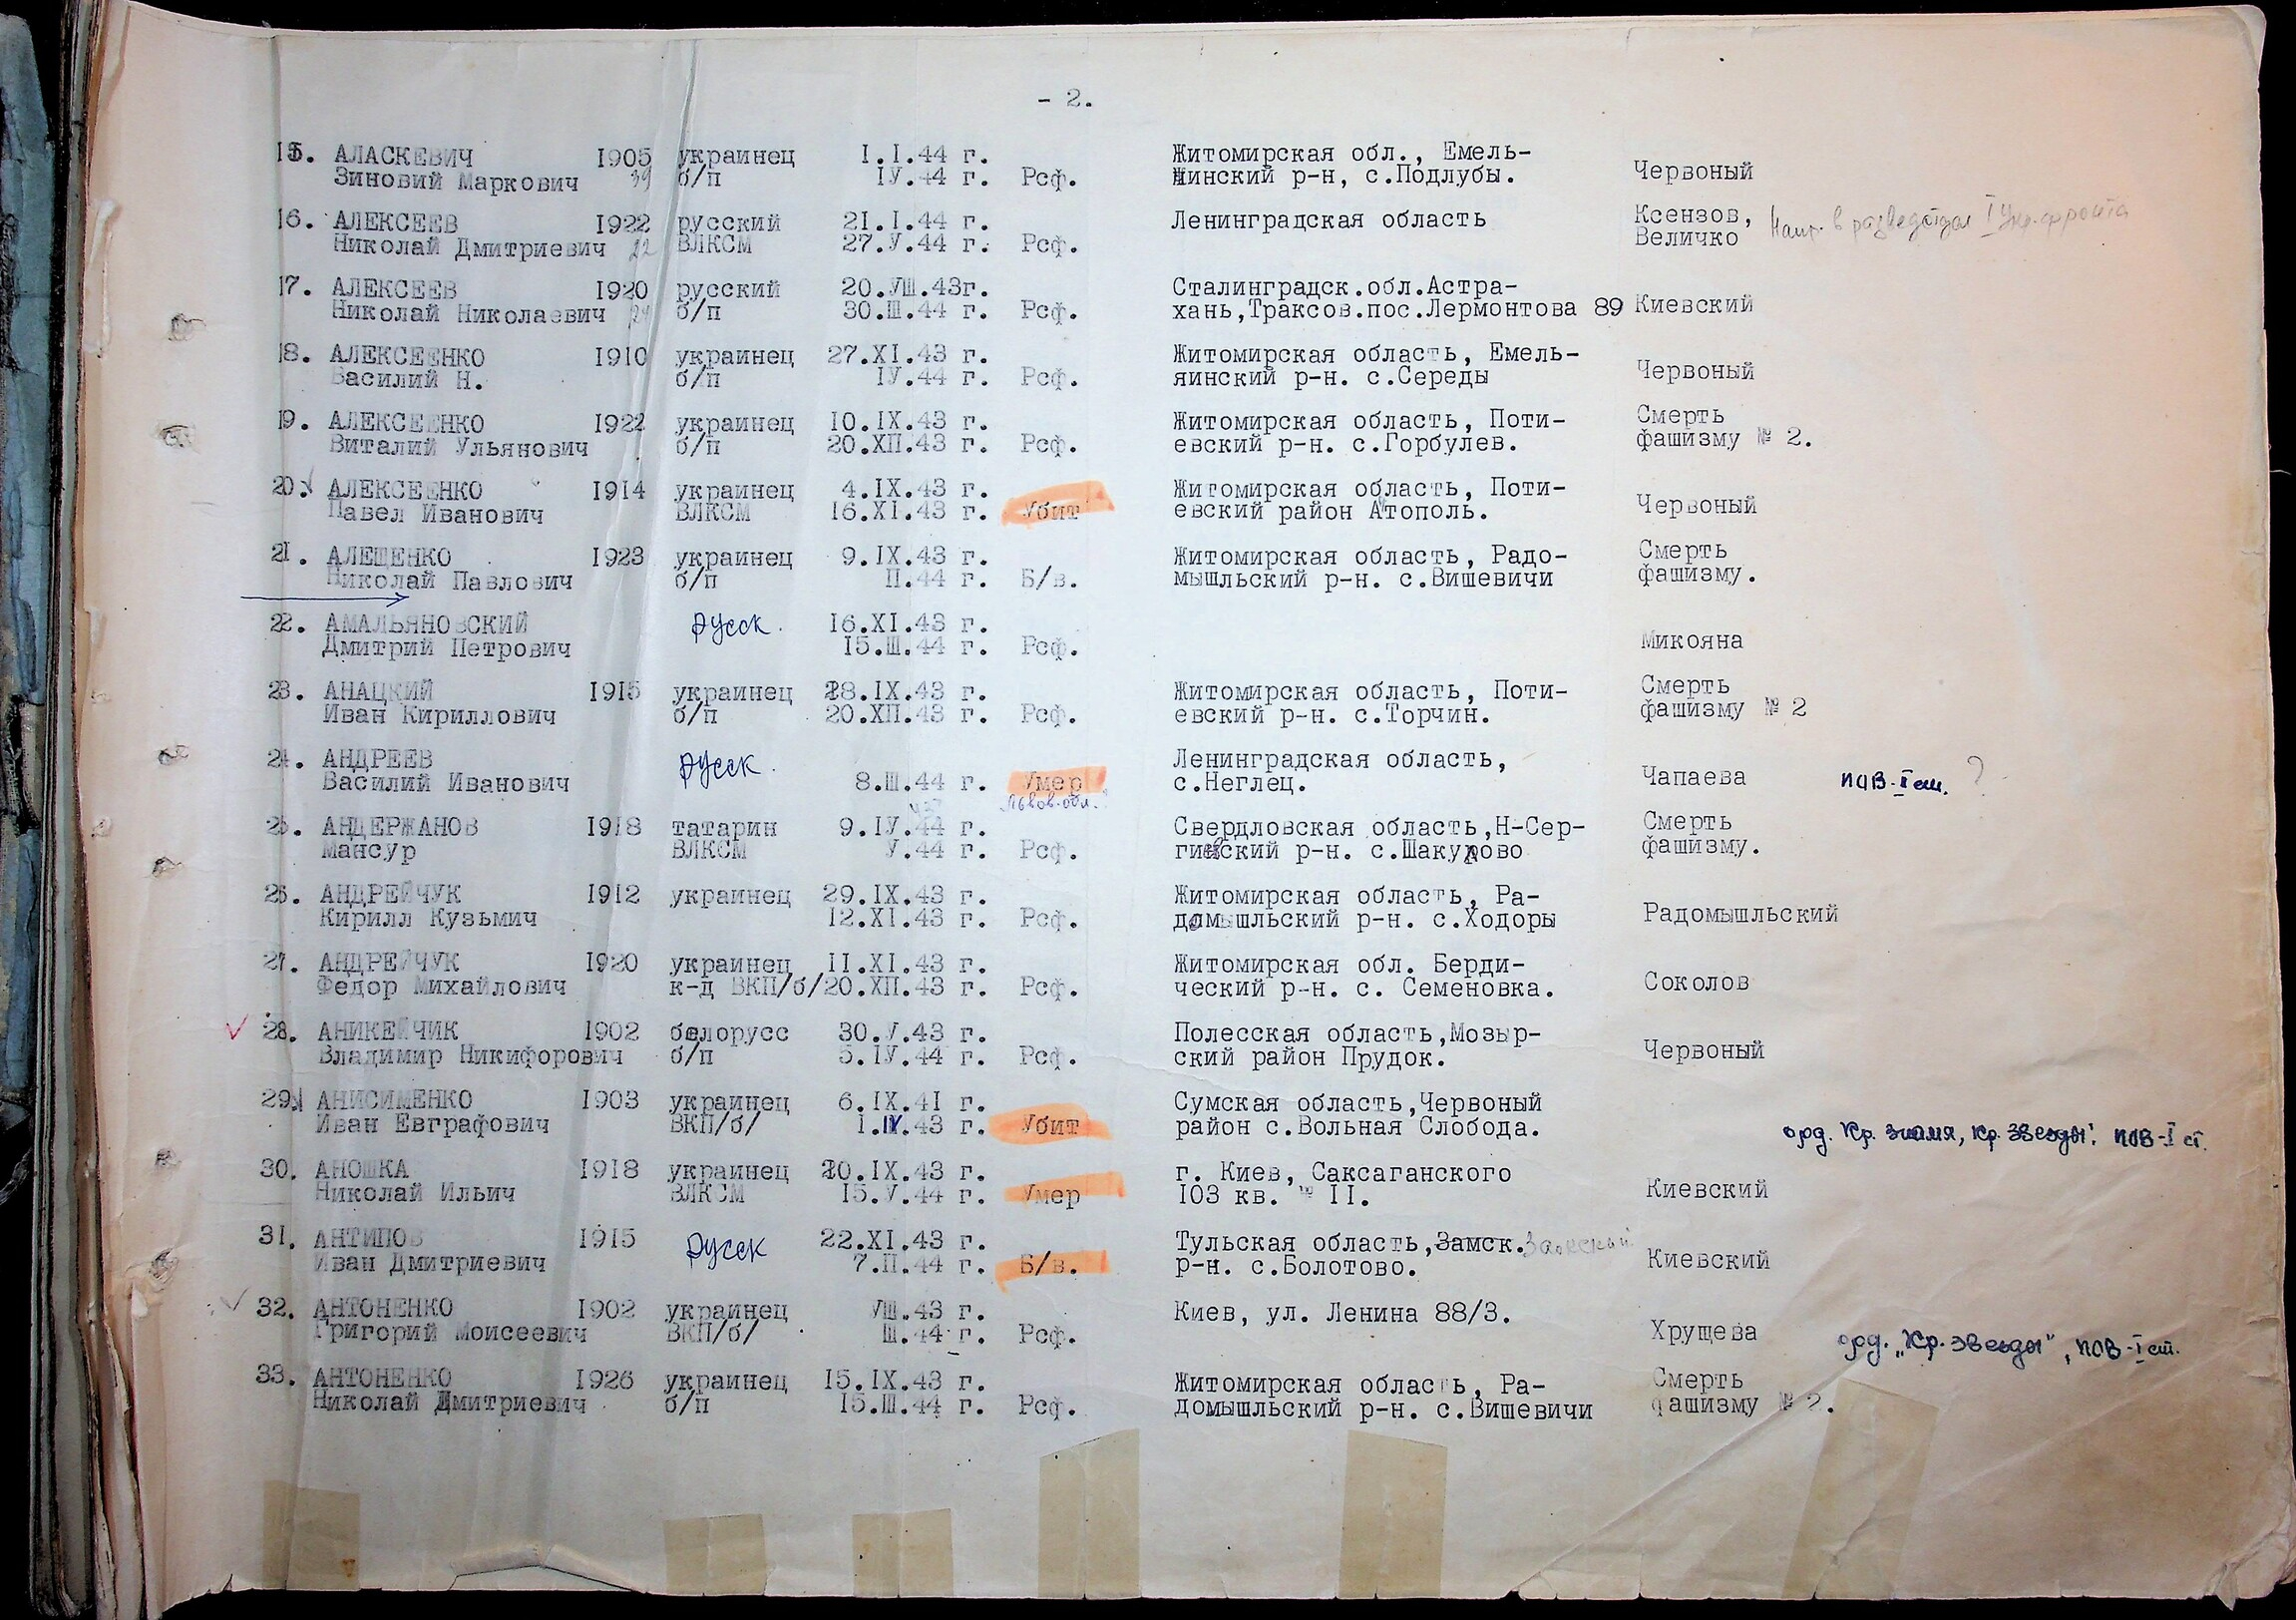 - 2.
15. АЛАСКЕВИЧ 1905 украинец I.I.44 г. Житомирская обл., Емель-
Зиновий Маркович 39 б/п IУ.44 г. Рсф. чинский р-н, с.Подлубы. Червоный
16. АЛЕКСЕЕВ 1922 русский 21.I.44 г. Ленинградская область Ксензов,
Николай Дмитриевич 22 ВЛКСМ 27.У.44 г. Рсф. Величко Напр. в разведотдел I Укр. фронта
17. АЛЕКСЕЕВ 1920 русский 20.УШ.43г. Сталинградск.обл.Астра-
Николай Николаевич 24 б/п 30.Ш.44 г. Рсф. хань,Траксов.пос.Лермонтова 89 Киевский
18. АЛЕКСЕЕНКО 1910 украинец 27.XI.43 г. Житомирская область, Емель-
Василий Н. б/п IУ.44 г. Рсф. янинский р-н. с.Середы Червоный
19. АЛЕКСЕЕНКО 1922 украинец 10.IX.43 г. Житомирская область, Поти- Смерть
Виталий Ульянович б/п 20.XII.43 г. Рсф. евский р-н. с.Горбулев. фашизму № 2.
20. АЛЕКСЕЕНКО 1914 украинец 4.IX.43 г. Житомирская область, Поти-
Павел Иванович ВЛКСМ 16.XI.43 г. Убит евский район Атополь. Червоный
21. АЛЕЩЕНКО 1923 украинец 9.IX.43 г. Житомирская область, Радо- Смерть
Николай Павлович б/п П.44 г. Б/в. мышльский р-н. с.Вишевичи фашизму.
22. АМАЛЬЯНОВСКИЙ русск. 16.XI.43 г.
Дмитрий Петрович 15.Ш.44 г. Рсф. Микояна
23. АНАЦКИЙ 1915 украинец 28.IX.43 г. Житомирская область, Поти- Смерть
Иван Кириллович б/п 20.XII.43 г. Рсф. евский р-н. с.Торчин. фашизму № 2
24. АНДРЕЕВ русск. Ленинградская область,
Василий Иванович 8.Ш.44 г. Умер с.Неглец. Чапаева ПОВ-I ст. ?
Львов.обл.
25. АНДЕРЖАНОВ 1918 татарин 9.IУ.44 г. Свердловская область,Н-Сер- Смерть
Мансур ВЛКСМ У.44 г. Рсф. гиевский р-н. с.Шакурово фашизму.
26. АНДРЕЙЧУК 1912 украинец 29.IX.43 г. Житомирская область, Ра-
Кирилл Кузьмич 12.XI.43 г. Рсф. домышльский р-н. с.Ходоры Радомышльский
27. АНДРЕЙЧУК 1920 украинец II.XI.43 г. Житомирская обл. Берди-
Федор Михайлович к-д ВКП/б/20.XII.43 г. Рсф. ческий р-н. с. Семеновка. Соколов
28. АНИКЕЙЧИК 1902 белорусс 30.У.43 г. Полесская область,Мозыр-
Владимир Никифорович б/п 5.IУ.44 г. Рсф. ский район Прудок. Червоный
29. АНИСИМЕНКО 1903 украинец 6.IX.41 г. Сумская область,Червоный
Иван Евграфович ВКП/б/ 1.IV.43 г. Убит район с.Вольная Слобода. орд. Кр. знамя, Кр. Звезды. ПОВ-I ст.
30. АНОШКА 1918 украинец 20.IX.43 г. г. Киев, Саксаганского
Николай Ильич ВЛКСМ 15.У.44 г. Умер 103 кв. № II. Киевский
31. АНТИПОВ 1915 русск 22.XI.43 г. Тульская область,Замск. Заокский
Иван Дмитриевич 7.П.44 г. Б/в. р-н. с.Болотово. Киевский
32. АНТОНЕНКО 1902 украинец УШ.43 г. Киев, ул. Ленина 88/3.
Григорий Моисеевич ВКП/б/ Ш.44 г. Рсф. Хрущева орд. „Кр. Звезды", ПОВ-I ст.
33. АНТОНЕНКО 1926 украинец 15.IX.43 г. Житомирская область, Ра- Смерть
Николай Дмитриевич б/п 15.Ш.44 г. Рсф. домышльский р-н. с.Вишевичи фашизму № 2.